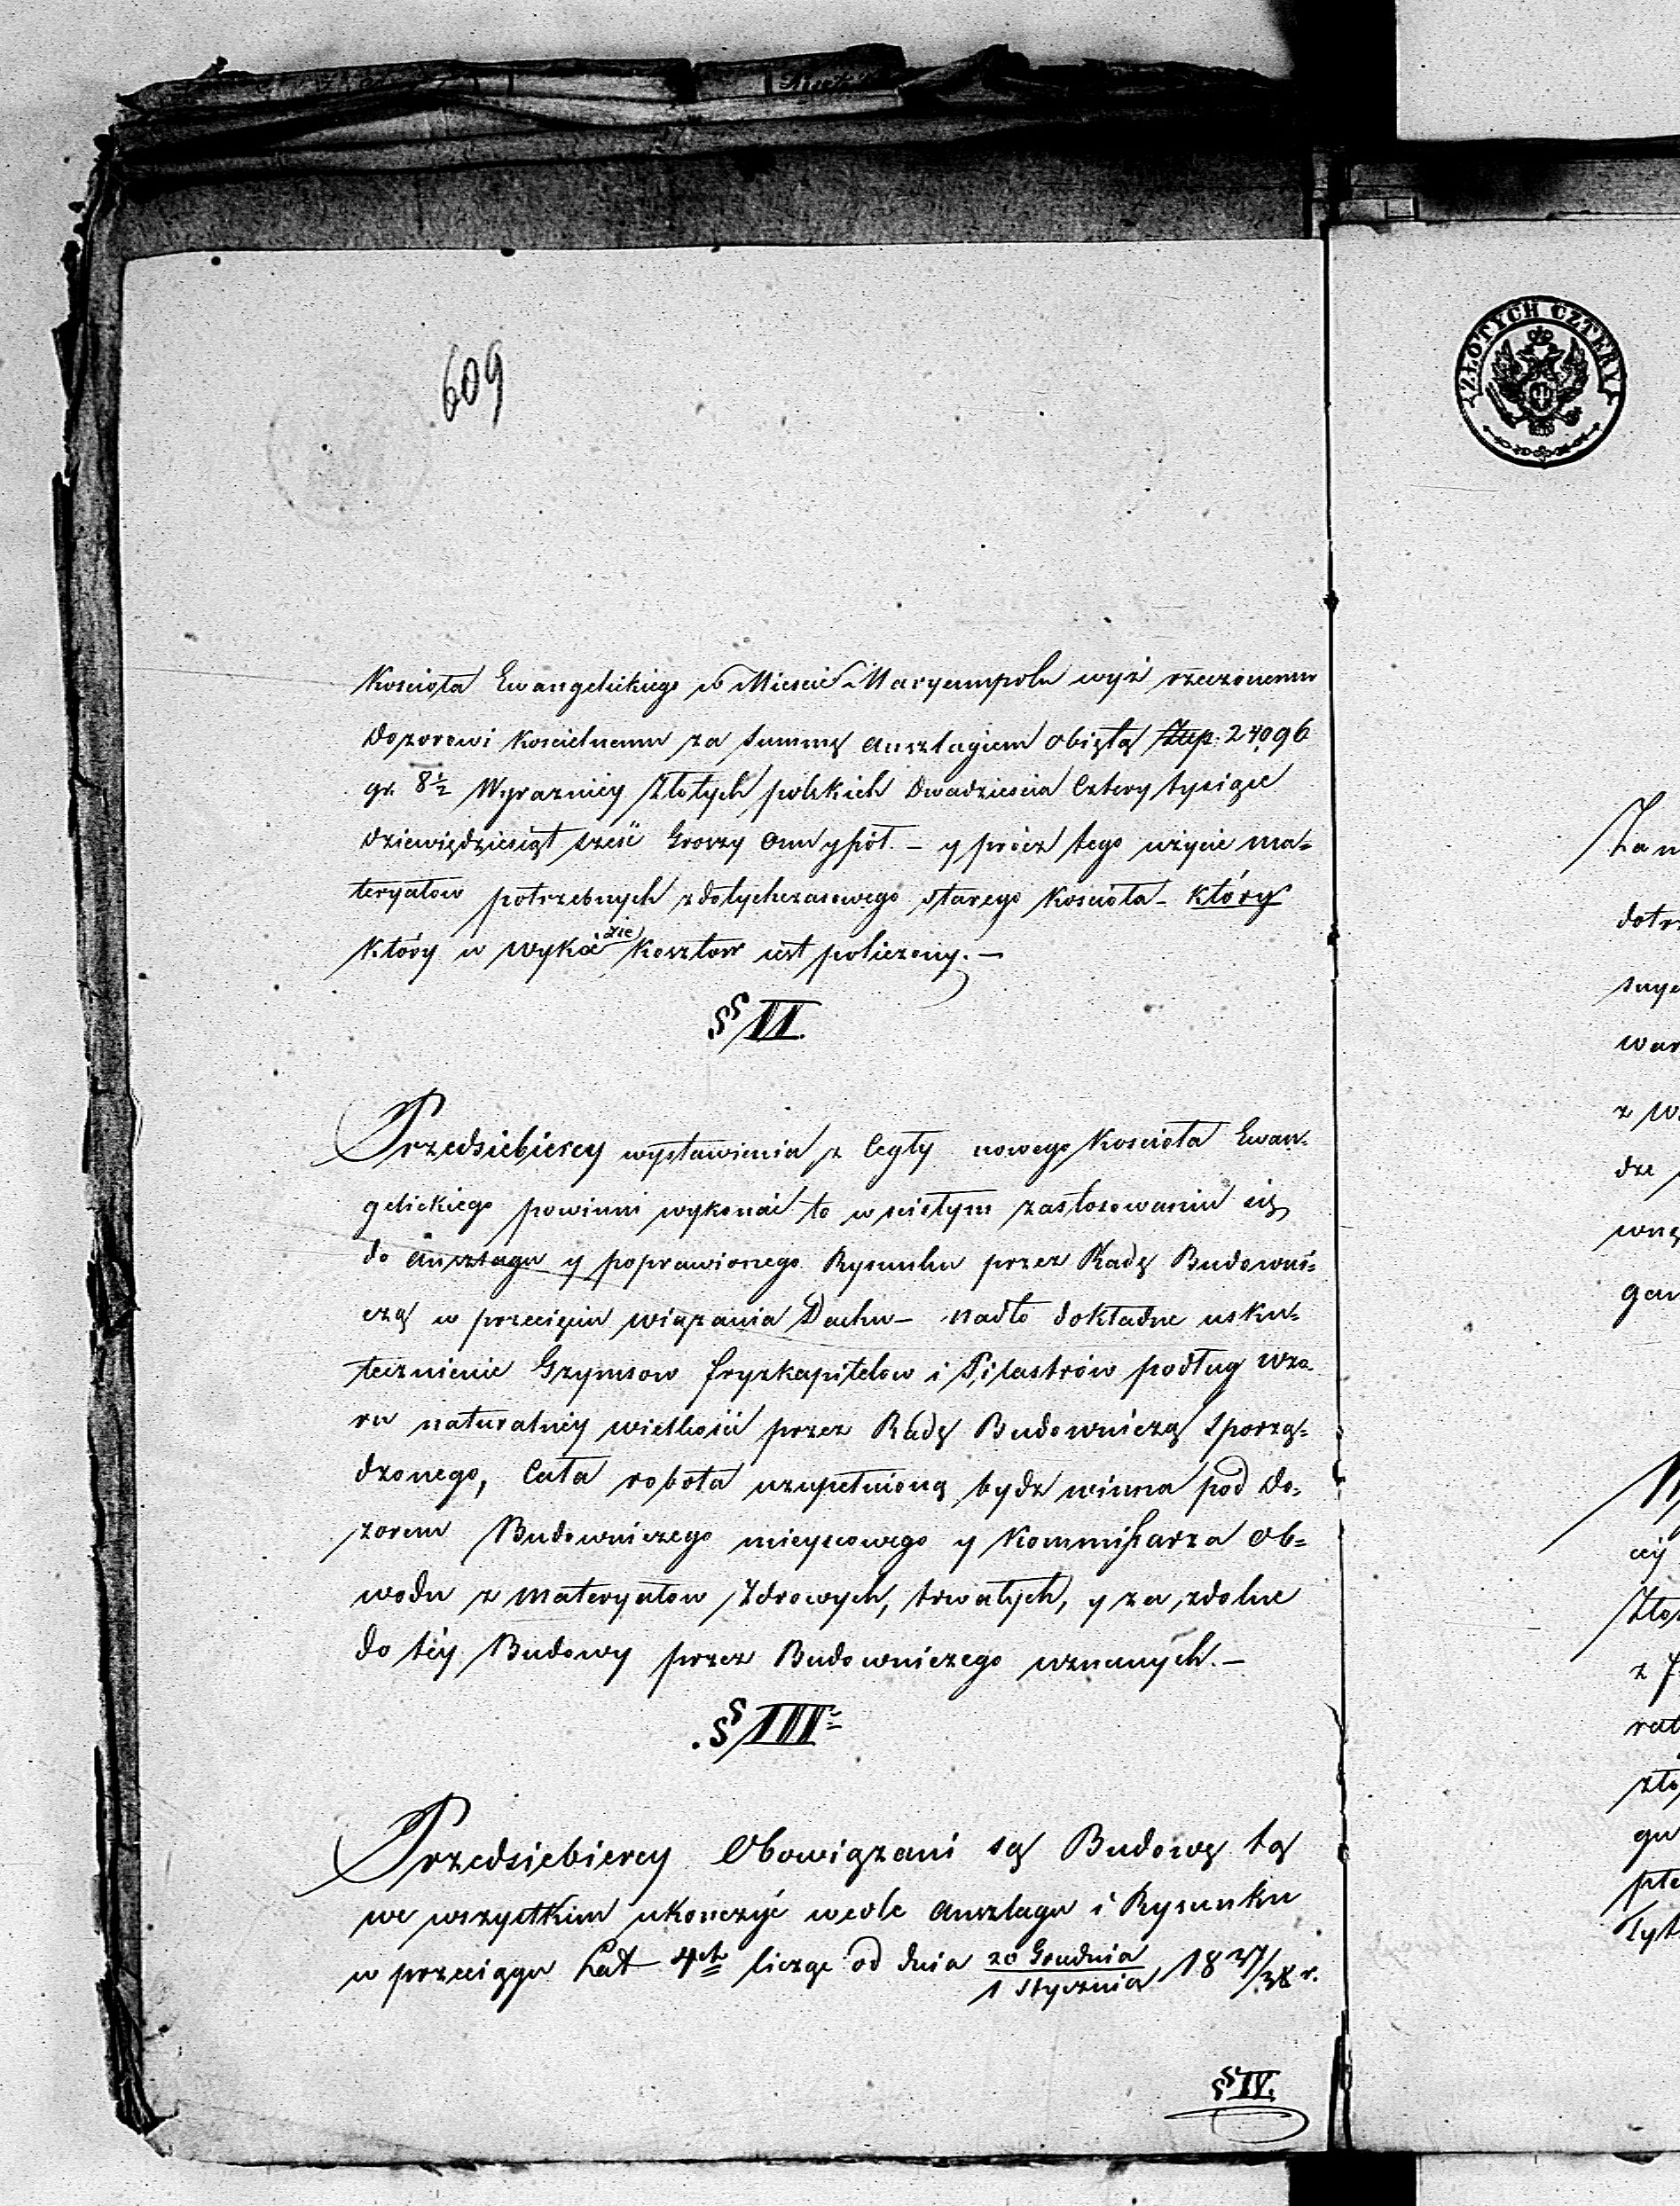 609
Kościoła Ewangelickiego w Mieście Maryampolu wyż rzeczonemu
Dozorowi Kościelnemu za summę anszlagiem obiętą Złp. 24096
gr. 8½ Wyraźniéy Złotych polskich Dwadzieścia Cztery tysiące
dziewiędziesiąt sześć Groszy ośm y pół. – y prócz tego użycie ma=
teryałow potrzebnych z dotychczasowego starego Kościoła – który
Który w wyka zie Kosztow iest policzony. –
§§ II.
Przedsiebiercy wystawienia z Cegły nowego Kościoła Ewan=
gelickiego powinni wykonać to w scisłym zastosowaniu się
do anszlagu y poprawionego Rysunku przez Radę Budowni=
czą w przecięciu wiązania Dachu – nadto dokładne usku=
tecznienie Gzymsow fryzkapitelow i Pilastrów podług wzo=
ru naturalnéy wielkości przez Radę Budowniczą Sporzą=
dzonego, Cała robota uzupełnioną bydz winna pod Do=
zorem Budowniczego mieyscowego y Kommissarza Ob=
wodu z materyałow Zdrowych, trwałych, y za zdolne
do téy Budowy przez Budowniczego uznanych. –
§§ III
Przedsiebiercy Obowiązani są Budowę tą
we wszystkim ukonczyć wedle anszlagu i Rysunku
w przeciągu Lat 4ch licząc od dnia 20 Grudnia / 1 Stycznia 1837/38 r.
§§ IV.
ZŁOTYCH CZTERY